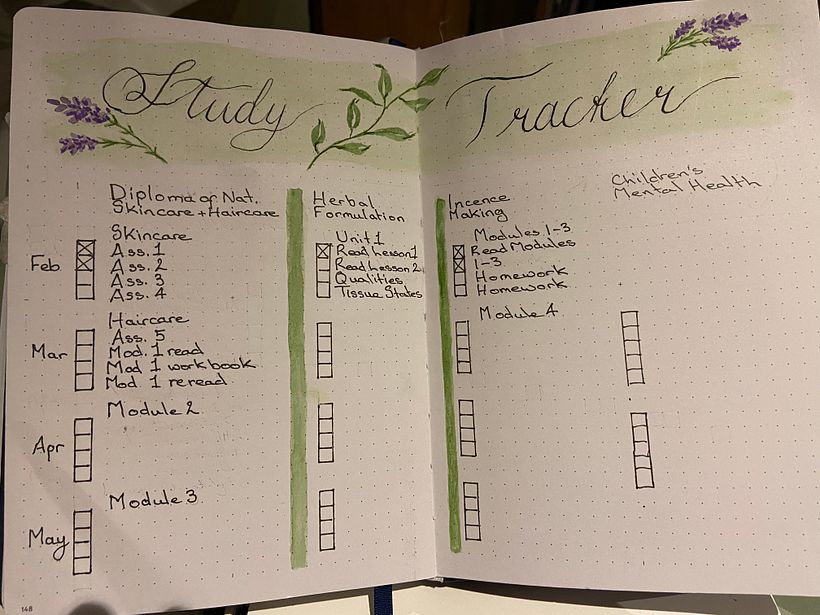 Study Tracker
Diploma of Nat.
Skincare + Haircare
Skincare
Feb
Ass. 1
Ass. 2
Ass. 3
Ass. 4
Haircare
Mar
Ass. 5
Mod. 1 read
Mod 1 workbook
Mod. 1 reread
Module 2
Apr
Module 3
May
148
Herbal
Formulation
Unit 1
Read Lesson 1
Read Lesson 2
Qualities
Tissue States
Incence
Making
Modules 1-3
Read Modules
1-3
Homework
Homework
Module 4
Children's
Mental Health